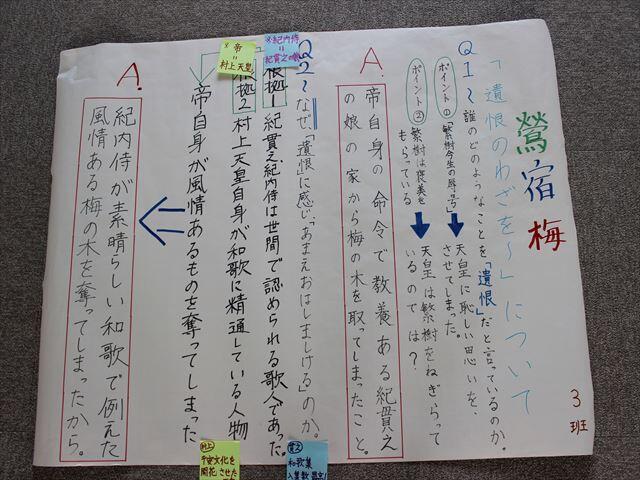 鶯宿梅
3班
「遺恨のわざを～」について
Q1～誰のどのようなことを「遺恨」だと言っているのか。
ポイント①
「繁樹今生の辱号」
天皇に恥しい思いを、
させてしまった。
ポイント②
繁樹は褒美を
もらっている
天皇は繁樹をねぎらって
いるのでは？
A.
帝自身の命令で教養ある紀貫之
の娘の家から梅の木を取ってしまったこと。
Q2～なぜ、「遺恨」に感じ、「あまえおはしましける」のか。
※紀内侍
＝
紀貫之の娘
根拠1 紀貫之、紀内侍は世間で認められる歌人であった。
※帝
＝
村上天皇
根拠2 村上天皇自身が和歌に精通している人物
帝自身が風情あるものを奪ってしまった
A.
紀内侍が素晴らしい和歌で例えた
風情ある梅の木を奪ってしまったから。
貫之
和歌集
村上
平安文化を
開花させた